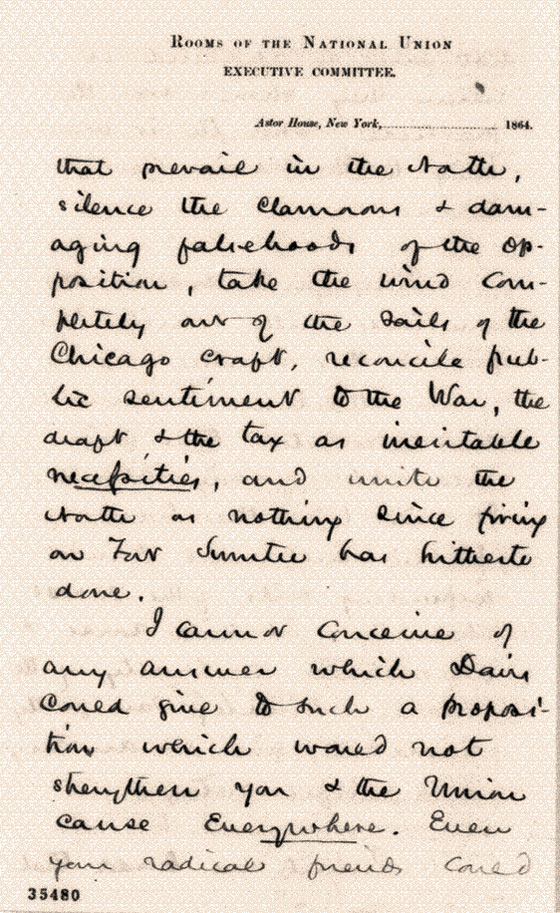 ROOMS OF THE NATIONAL UNION
EXECUTIVE COMMITTEE.
Astor House, New York, 1864.
that prevail in the North,
silence the clamorous & dam-
aging falsehoods of the op-
position, take the wind com-
pletely out of the sails of the
Chicago craft, reconcile pub-
lic sentiment to the War, the
draft & the tax as inevitable
necessities, and unite the
North as nothing since firing
on Fort Sumter has hitherto
done.
I cannot conceive of
any answer which Davis
could give to such a proposi-
tion which would not
strengthen you & the Union
cause everywhere. Even
your radical friends could
35480